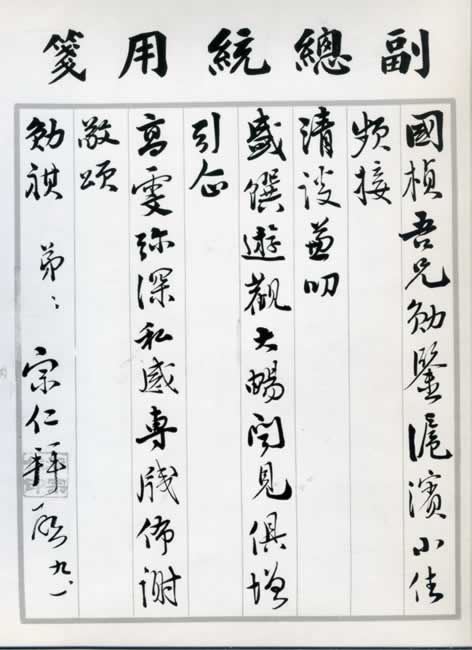 副總統用箋
國楨吾兄勛鑒滬濱小住
頻接
清談兼叨
盛饌遊觀大暢聞見俱增
引企
高雯弥深私感專牋佈謝
敬頌
勛祺 弟 宗仁拜啟 九、一